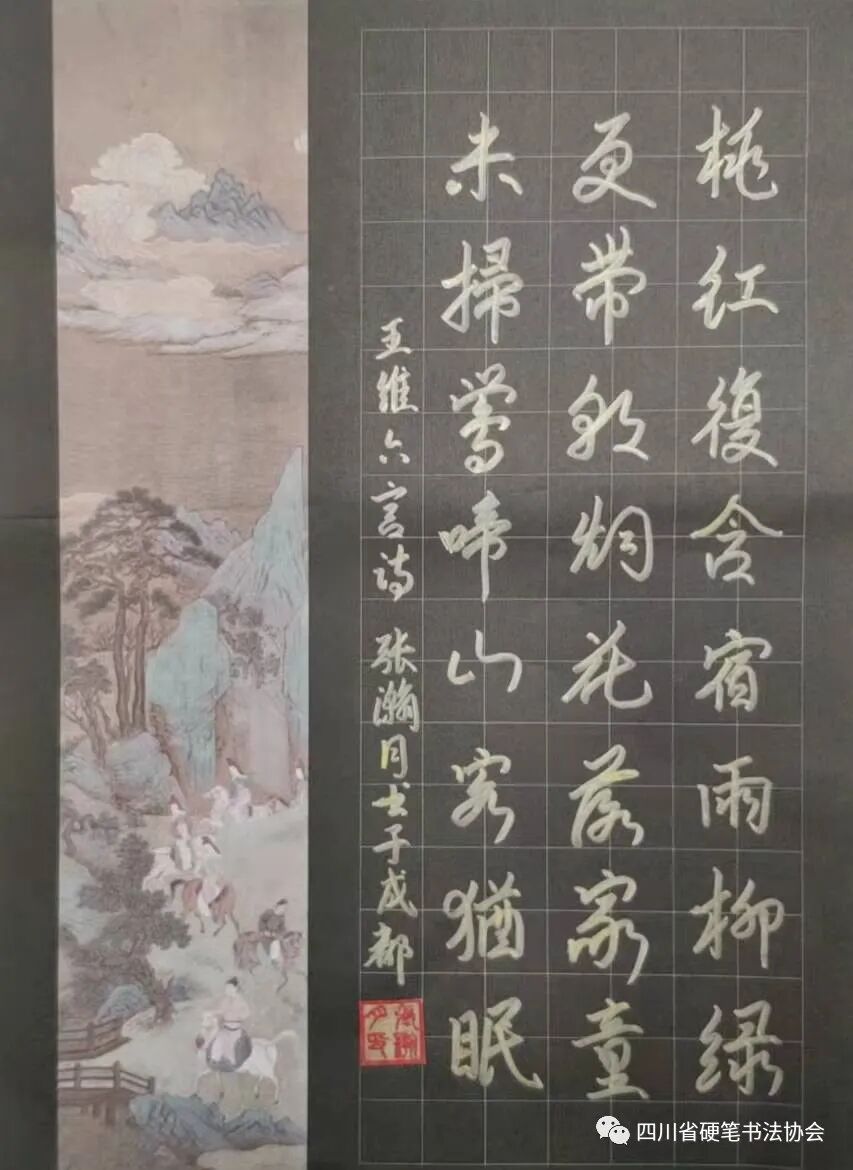 桃红復含宿雨柳绿
更带朝烟花落家童
未掃莺啼山客猶眠
王維六言诗 张瀚月书于成都
四川省硬笔书法协会